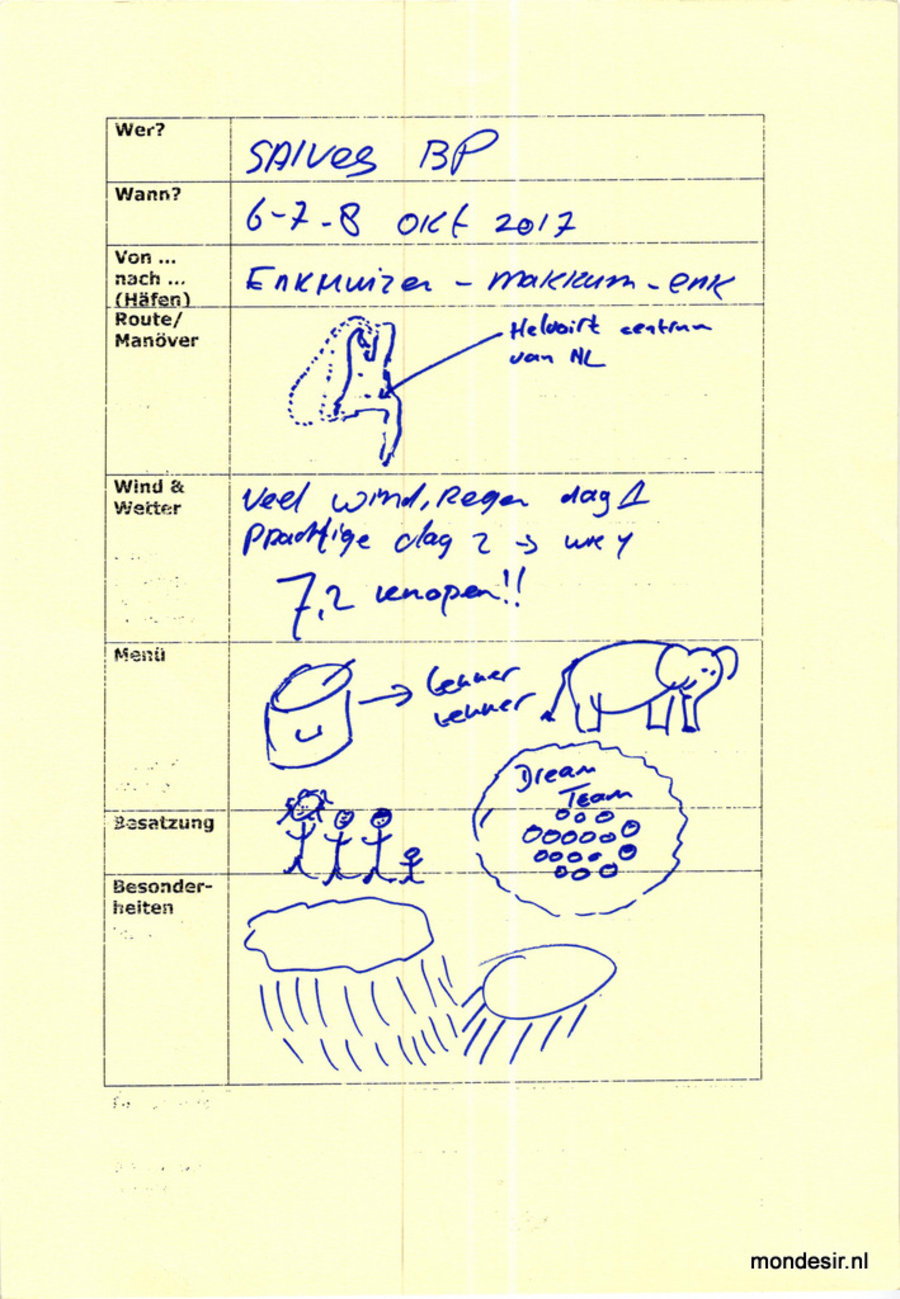 Wer?
SAlves BP
Wann?
6-7-8 OKt 2017
Von ...
nach ...
(Häfen)
EnKHuizen - makkum - enk
Route/
Manöver
Helvoirt centrum
van NL
Wind &
Wetter
Veel wind, Regen dag 1
Prachtige dag 2 →
7,2 knopen!!
Menü
Lekker
Lekker
Dream
Team
Besatzung
Besonder-
heiten
mondesir.nl